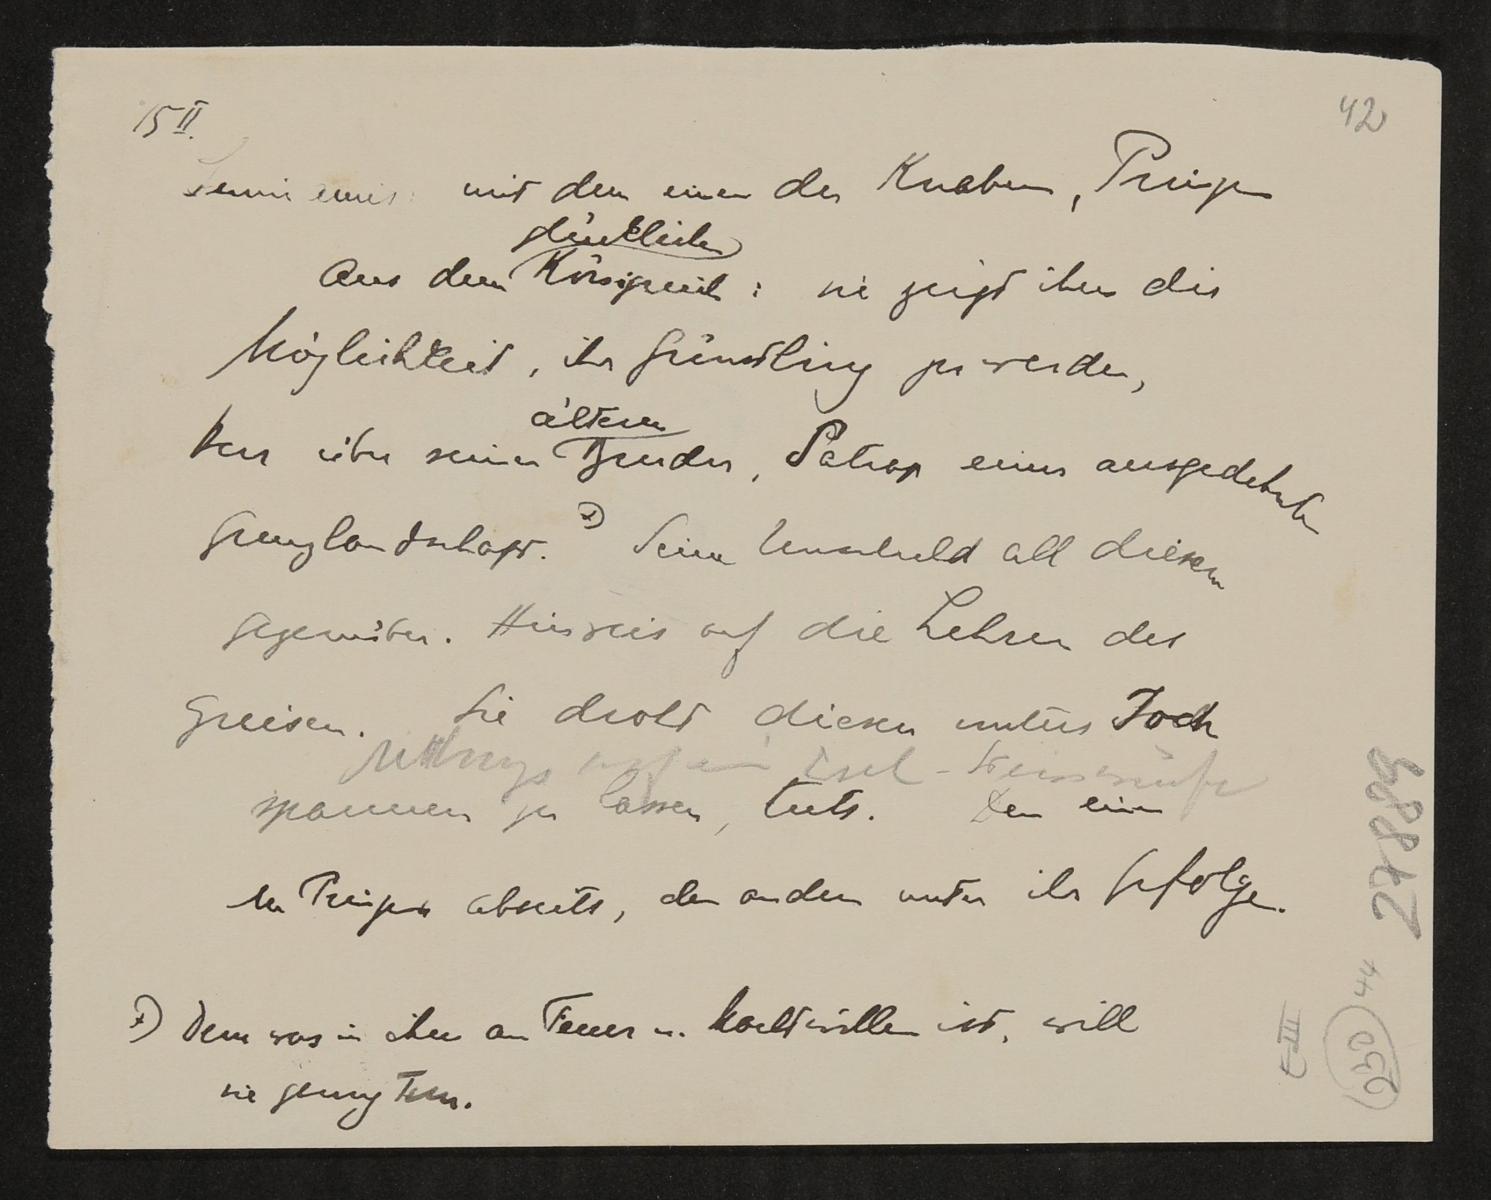 15 II.
42
Semiramis: mit dem einen der Knaben, Prinzen
glücklichen
aus dem Königreich: sie zeigt ihm die
Möglichkeit, ihr Günstling zu werden,
Herr über seinen
älteren
Bruder, Satrap einer ausgedehnten
Grenzlandschaft. x) Seine Unschuld all diesem
gegenüber. Hinweis auf die Lehren des
Greisen. Sie droht diesen unters Joch
auf ein Esel
spannen zu lassen, tuts. Den einen
der Prinzen abseits, den andern unter ihr Gefolge.
x) Dem was in ihm an Feuer u. Machtwillen ist, will
sie genug tun.
27889
E III
230
44